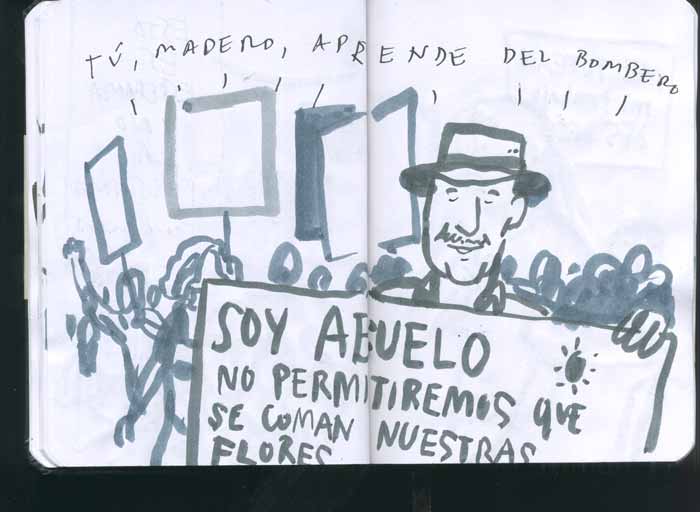 TÚ, MADERO, APRENDE DEL BOMBERO
SOY ABUELO
NO PERMITIREMOS QUE
SE COMAN NUESTRAS
FLORES